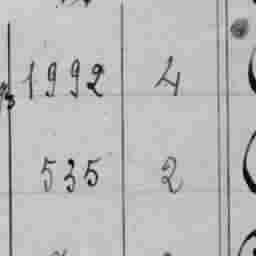 1992 4
535 2